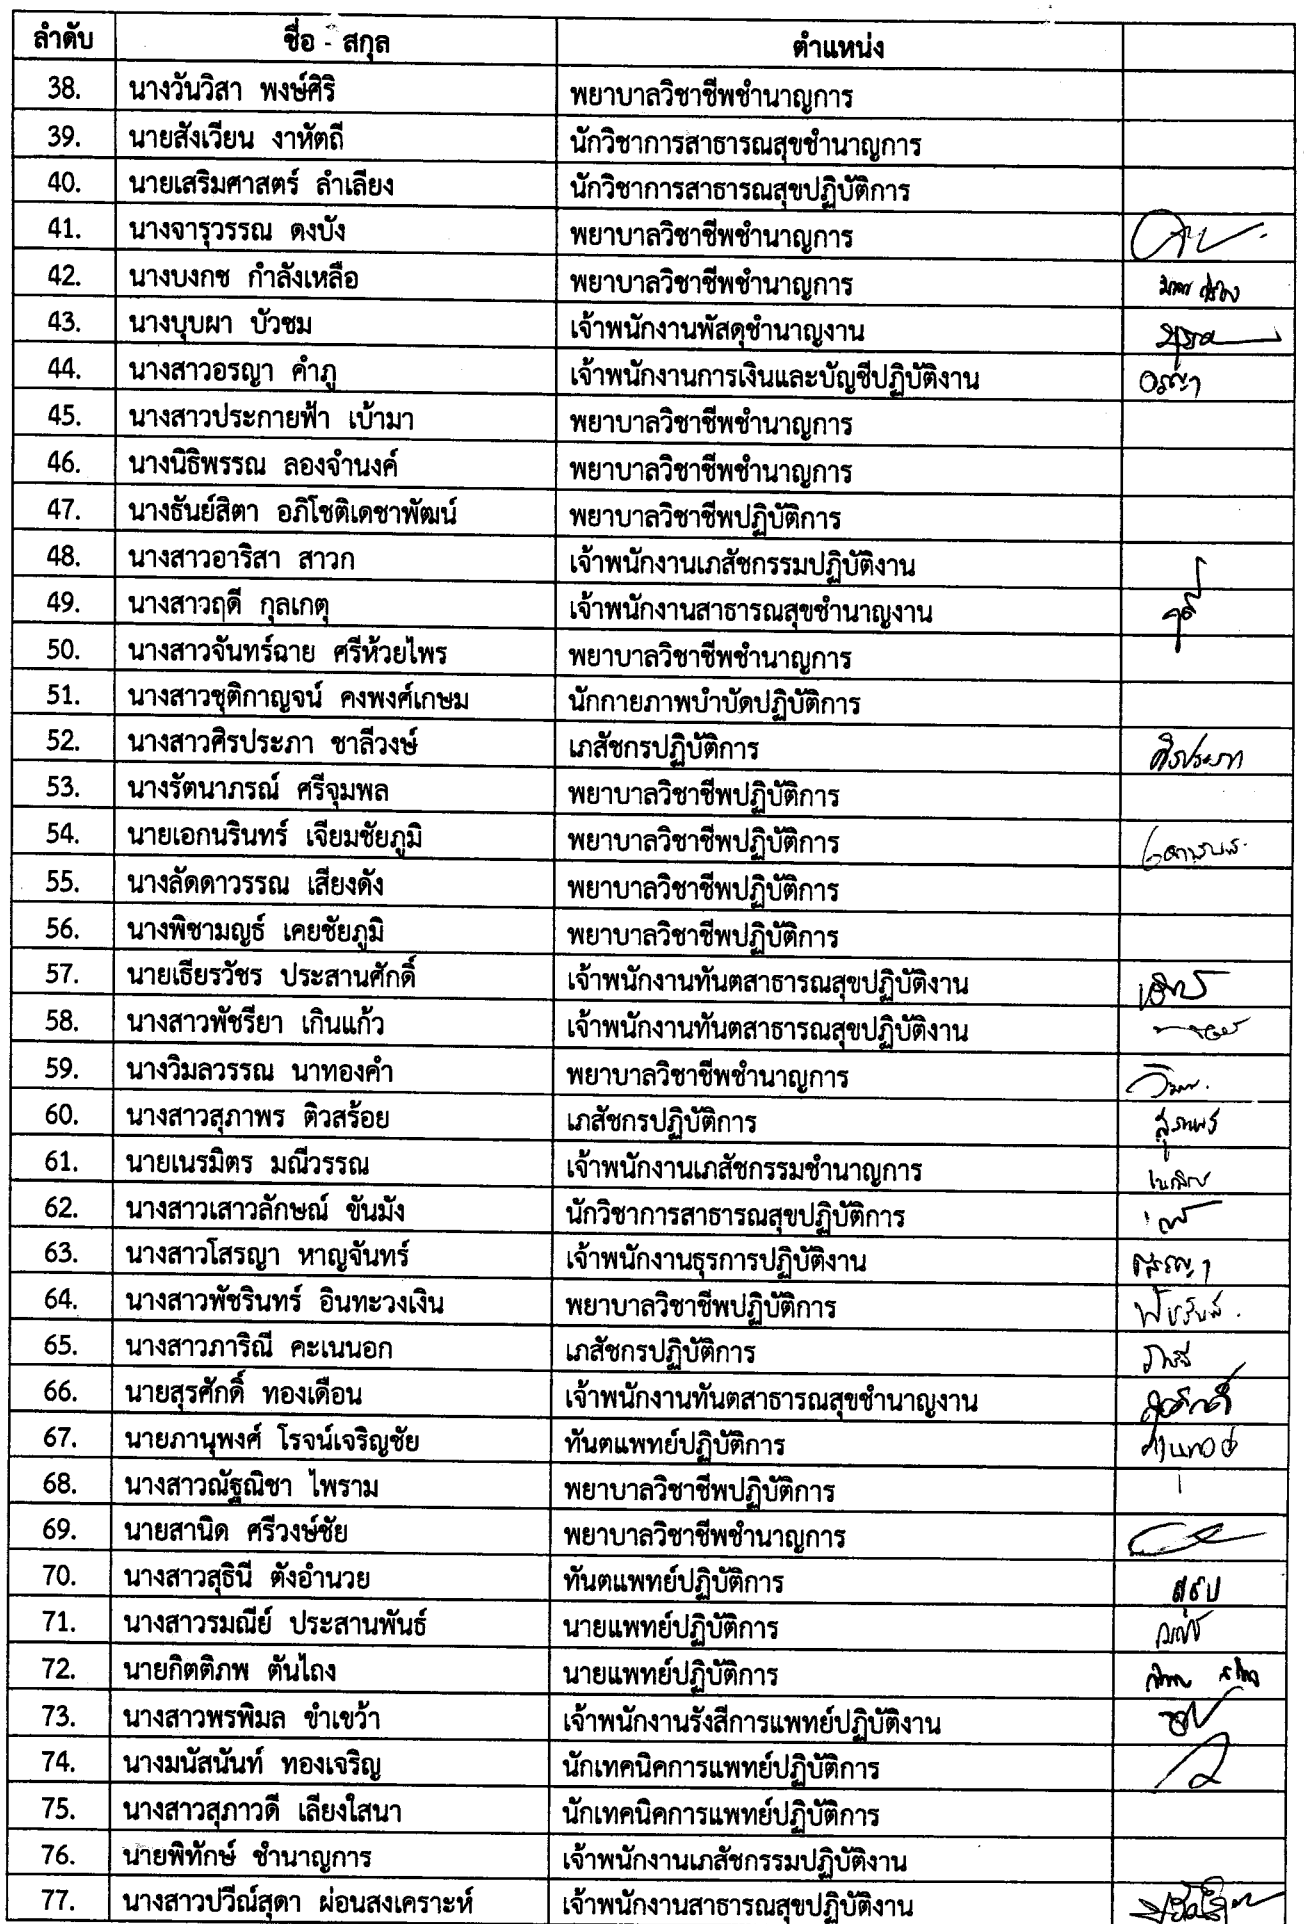 ลำดับ ชื่อ - สกุล ตำแหน่ง
38. นางวันวิสา พงษ์ศิริ พยาบาลวิชาชีพชำนาญการ
39. นายสังเวียน งาหัตถี นักวิชาการสาธารณสุขชำนาญการ
40. นายเสริมศาสตร์ ลำเลียง นักวิชาการสาธารณสุขปฏิบัติการ
41. นางจารุวรรณ ดงบัง พยาบาลวิชาชีพชำนาญการ
42. นางบงกช กำลังเหลือ พยาบาลวิชาชีพชำนาญการ
43. นางบุบผา บัวชม เจ้าพนักงานพัสดุชำนาญงาน
44. นางสาวอรญา คำภู เจ้าพนักงานการเงินและบัญชีปฏิบัติงาน อรญา
45. นางสาวประกายฟ้า เบ้ามา พยาบาลวิชาชีพชำนาญการ
46. นางนิธิพรรณ ลองจำนงค์ พยาบาลวิชาชีพชำนาญการ
47. นางธันย์สิตา อภิโชติเดชาพัฒน์ พยาบาลวิชาชีพปฏิบัติการ
48. นางสาวอาริสา สาวก เจ้าพนักงานเภสัชกรรมปฏิบัติงาน
49. นางสาวฤดี กุลเกตุ เจ้าพนักงานสาธารณสุขชำนาญงาน ฤดี
50. นางสาวจันทร์ฉาย ศรีห้วยไพร พยาบาลวิชาชีพชำนาญการ
51. นางสาวชุติกาญจน์ คงพงศ์เกษม นักกายภาพบำบัดปฏิบัติการ
52. นางสาวศิรประภา ชาลีวงษ์ เภสัชกรปฏิบัติการ ศิรประภา
53. นางรัตนาภรณ์ ศรีจุมพล พยาบาลวิชาชีพปฏิบัติการ
54. นายเอกนรินทร์ เจียมชัยภูมิ พยาบาลวิชาชีพปฏิบัติการ
55. นางลัดดาวรรณ เสียงดัง พยาบาลวิชาชีพปฏิบัติการ
56. นางพิชามญธ์ เคยชัยภูมิ พยาบาลวิชาชีพปฏิบัติการ
57. นายเธียรวัชร ประสานศักดิ์ เจ้าพนักงานทันตสาธารณสุขปฏิบัติงาน
58. นางสาวพัชรียา เกินแก้ว เจ้าพนักงานทันตสาธารณสุขปฏิบัติงาน
59. นางวิมลวรรณ นาทองคำ พยาบาลวิชาชีพชำนาญการ
60. นางสาวสุภาพร ติวสร้อย เภสัชกรปฏิบัติการ สุภาพร
61. นายเนรมิตร มณีวรรณ เจ้าพนักงานเภสัชกรรมชำนาญการ
62. นางสาวเสาวลักษณ์ ขันมัง นักวิชาการสาธารณสุขปฏิบัติการ
63. นางสาวโสรญา หาญจันทร์ เจ้าพนักงานธุรการปฏิบัติงาน โสรญา
64. นางสาวพัชรินทร์ อินทะวงเงิน พยาบาลวิชาชีพปฏิบัติการ
65. นางสาวภาริณี คะเนนอก เภสัชกรปฏิบัติการ
66. นายสุรศักดิ์ ทองเดือน เจ้าพนักงานทันตสาธารณสุขชำนาญงาน สุรศักดิ์
67. นายภานุพงศ์ โรจน์เจริญชัย ทันตแพทย์ปฏิบัติการ
68. นางสาวณัฐณิชา ไพราม พยาบาลวิชาชีพปฏิบัติการ
69. นายสานิด ศรีวงษ์ชัย พยาบาลวิชาชีพชำนาญการ
70. นางสาวสุธินี ตังอำนวย ทันตแพทย์ปฏิบัติการ
71. นางสาวรมณีย์ ประสานพันธ์ นายแพทย์ปฏิบัติการ
72. นายกิตติภพ ตันไถง นายแพทย์ปฏิบัติการ
73. นางสาวพรพิมล ขำเขว้า เจ้าพนักงานรังสีการแพทย์ปฏิบัติงาน
74. นางมนัสนันท์ ทองเจริญ นักเทคนิคการแพทย์ปฏิบัติการ
75. นางสาวสุภาวดี เลียงใสนา นักเทคนิคการแพทย์ปฏิบัติการ
76. นายพิทักษ์ ชำนาญการ เจ้าพนักงานเภสัชกรรมปฏิบัติงาน
77. นางสาวปวีณ์สุดา ผ่อนสงเคราะห์ เจ้าพนักงานสาธารณสุขปฏิบัติงาน